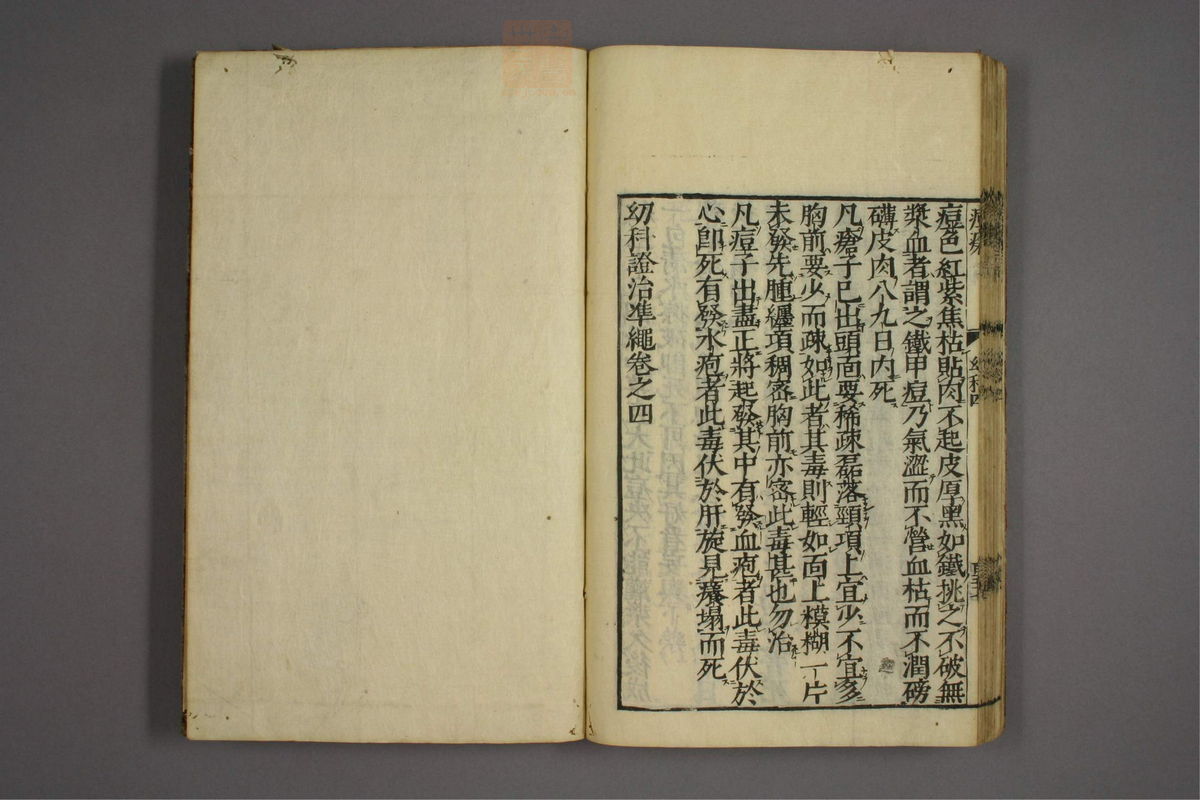 痘色紅紫焦枯貼肉不起皮厚黑如鐵挑之不破無
漿血者謂之鐵甲痘乃氣澀而不營血枯而不潤磅
礴皮肉八九日內死
凡瘡子已出頭面要稀疎磊落頸項上宜少不宜多
胸前要少而疎如此者其毒則輕如面上模糊一片
未發先腫纏項稠密胸前亦密此毒甚也勿治
凡痘子出盡正將起發其中有發血疱者此毒伏於
心卽死有發水疱者此毒伏於肝旋見癢塌而死
幼科證治準繩卷之四